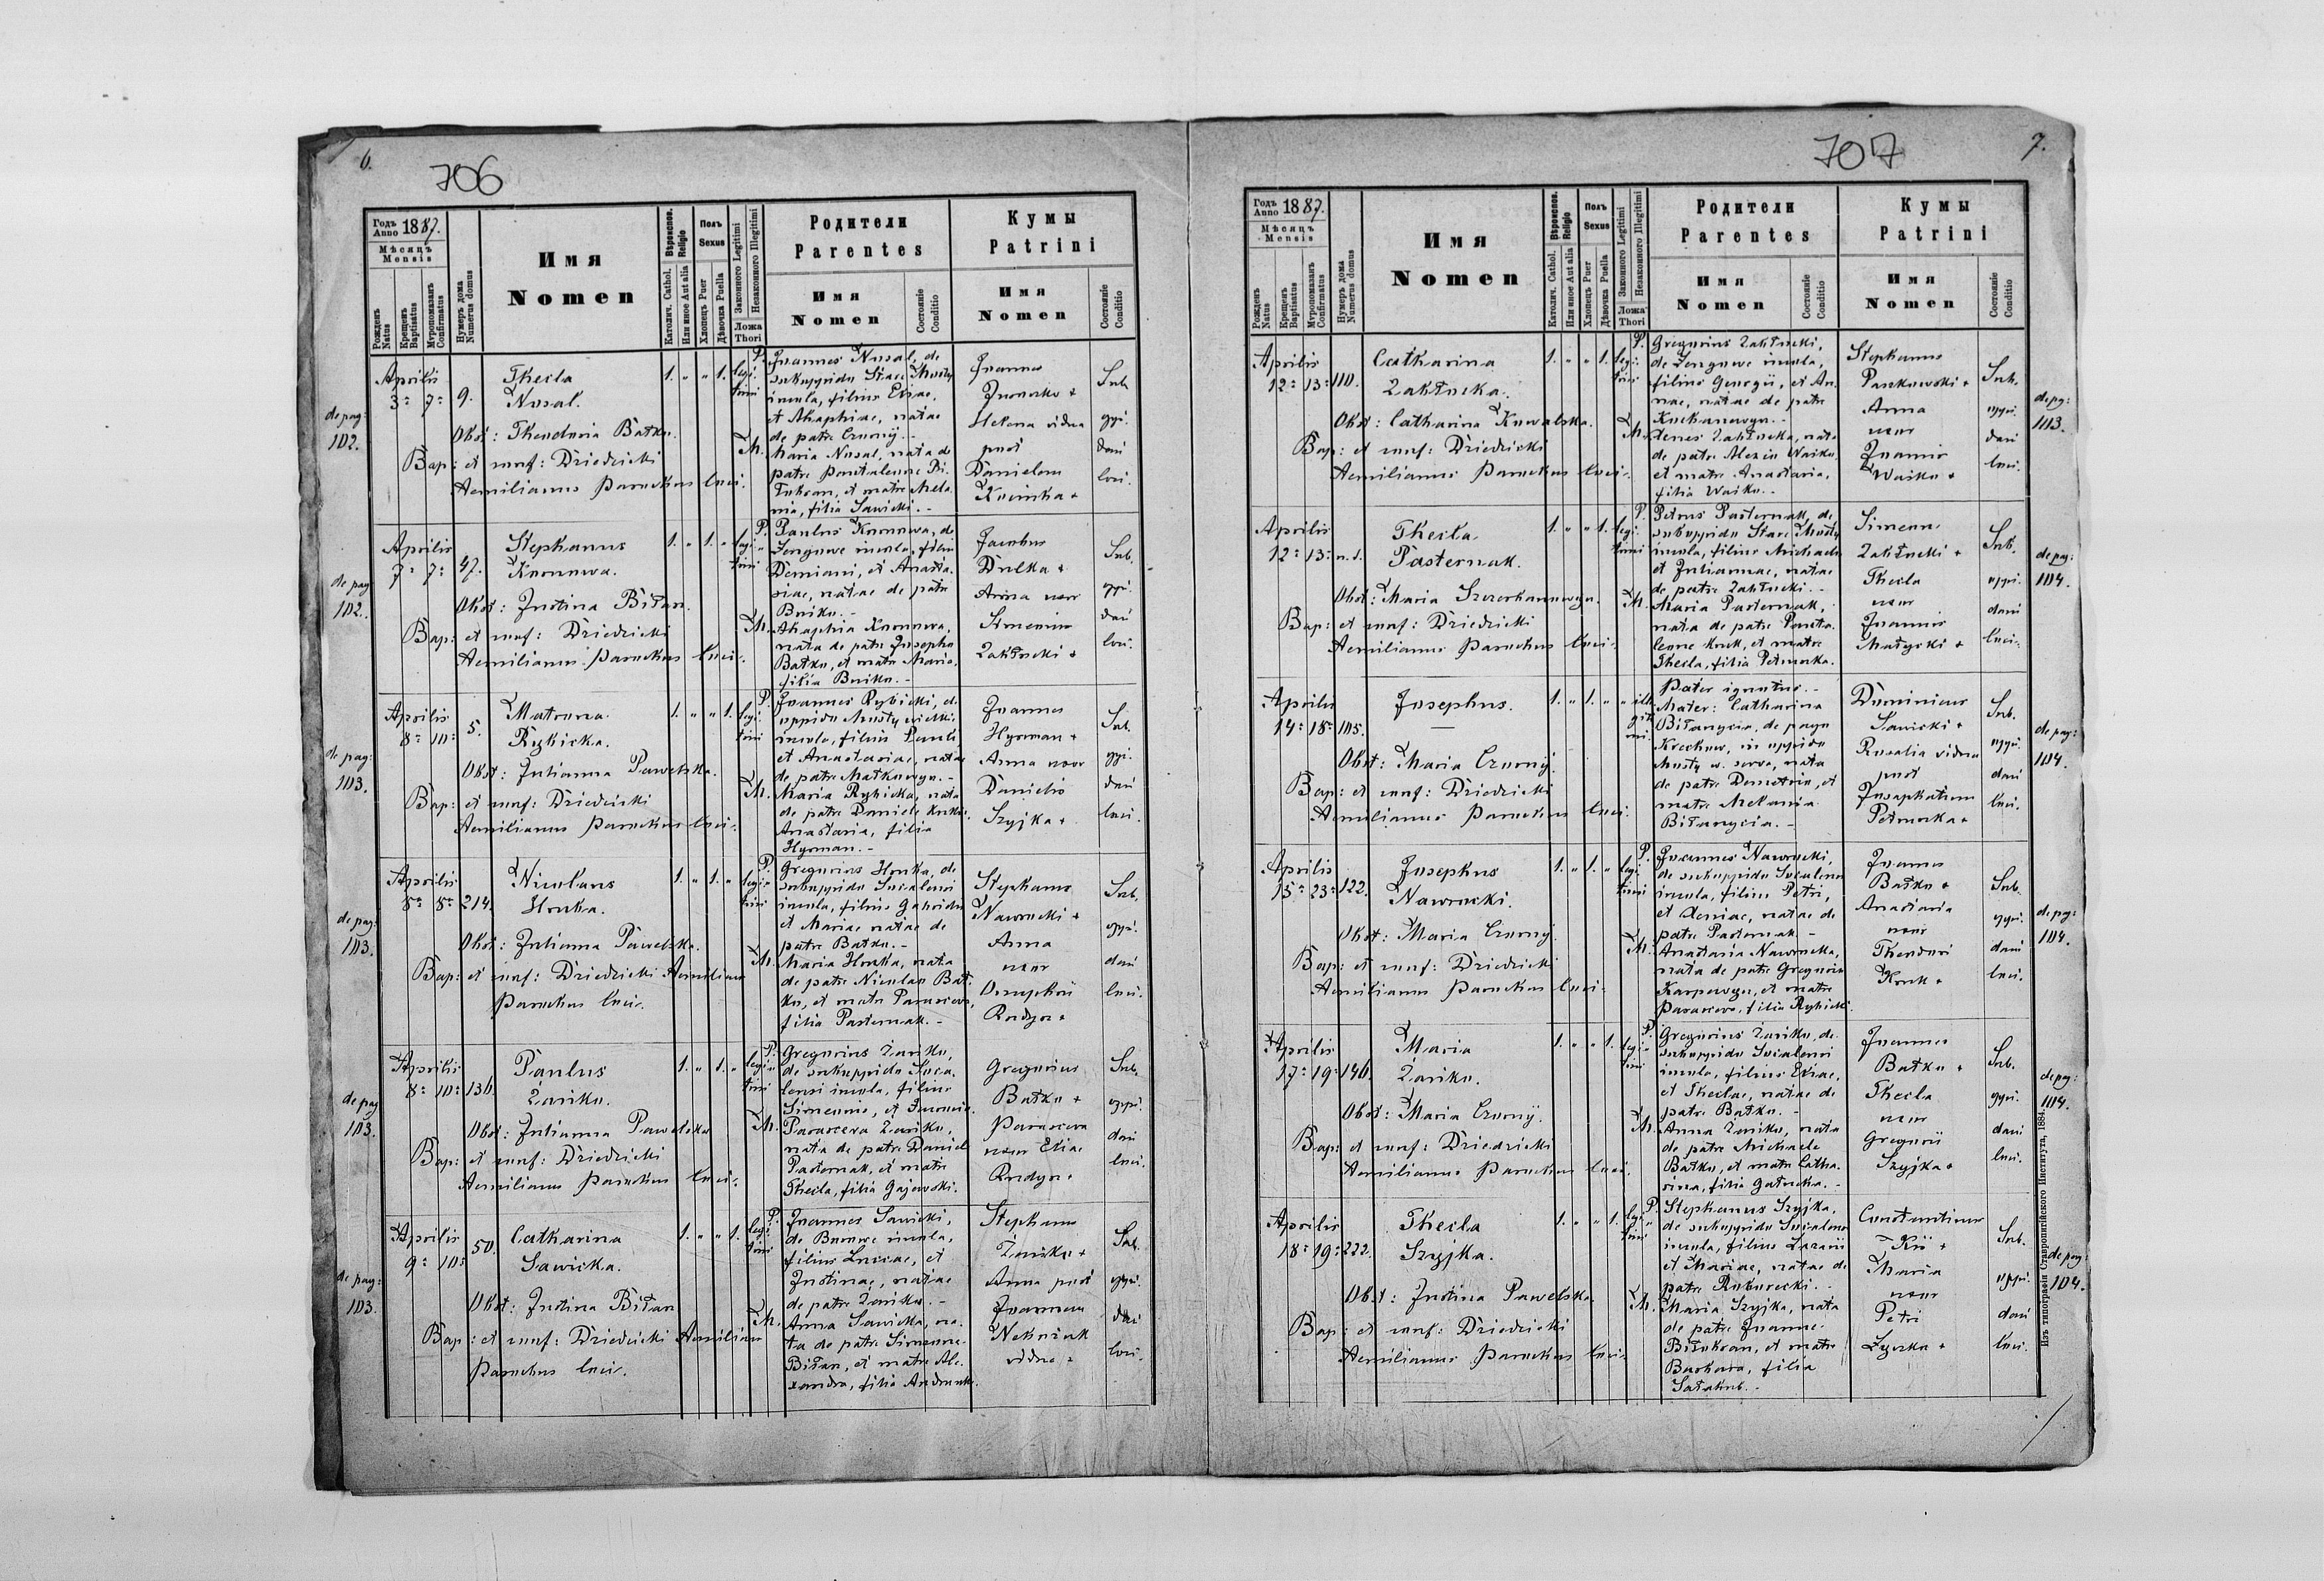 6.
706
Годъ Anno 1887.
Мѣсяцъ Mensis
Рожденъ Natus
Крещенъ Baptisatus
Мѵропомазанъ Confirmatus
Нумеръ дома Numerus domus
Имя
Nomen
Вѣроиспов. Religio
Католич. Cathol.
Или иное Aut alia
Полъ Sexus
Хлопецъ Puer
Дѣвочка Puella
Законного Legitimi
Незаконного Illegitimi
Ложа Thori
Родители
Parentes
Имя
Nomen
Состояніе Conditio
Кумы
Patrini
Имя
Nomen
Состояніе Conditio
de pag: 102.
Aprilis
3a 7a 9.
Thecla
Nosal.
1. „ „ 1. legi-
timi
Obst: Theodoria Batko.
Bap: et conf: Dziedzicki
Aemilianus Parochus loci.
P. Joannes Nosal, de
suboppido Stare Mosty
incola, filius Eliae,
et Ahaphiae, natae
de patre Czorny.-
M. Maria Nosal, nata de
patre Pantaleone Bi-
łokran, et matre Mela-
nia, filia Sawicki.-
Joannes
Helena vidua
post
Danielem
Sub
oppi-
dani
loci.
de pag: 102.
Aprilis
7a 7a 47.
Stephanus
Kononowa.
1. „ 1. „ legi-
timi
Obst: Justina Biłan.
Bap: et conf: Dziedzicki
Aemilianus Parochus loci.
P. Paulus Kononowa, de
incola, filius
Demiani, et Anasta-
siae, natae de patre
Bniko.-
M. Ahaphia Kononowa,
nata de patre Josepho
Batko, et matre Maria,
filia Boiko.-
Jacobus
Dulka +
Anna uxor
Simeonis
Zakłucki +
Sub.
oppi-
dani
loci.
de pag: 103.
Aprilis
8a 10a 5.
Matrona.
Rybicka.
1. „ „ 1. legi-
timi
Obst: Julianna Pawelska.
Bap: et conf: Dziedzicki
Aemilianus Parochus loci.
P. Joannes Rybicki, de
oppido Mosty wielki
incola, filius Pauli
et Anastasiae, natae
de patre Matkowyn.-
M. Maria Rybicka, nata
de patre Daniele
Anastasia, filia
Hyrman.-
Joannes
Hyrman +
Anna uxor
Danielis
Szyjka +
Sub.
oppi-
dani
loci.
de pag: 103.
Aprilis
8a 8a 214.
Nicolaus
Honka.
1. „ 1. „ legi-
timi
Obst: Julianna Pawelska.
Bap: et conf: Dziedzicki Aemilianus
Parochus loci.
P. Gregorius Honka, de
suboppido Socialensi
incola, filius Gabrielis
et Mariae natae de
patre Batko.-
M. Maria Honka, nata
de patre Nicolao Bat-
ko, et matre Parasceva,
filia Pasternak.-
Stephanus
Nawrocki +
Anna
uxor
Onuphrii
Sub.
oppi-
dani
loci.
de pag: 103.
Aprilis
8a 10a 136.
Paulus
Zariko.
1. „ 1. „ legi-
timi
Obst: Julianna Pawelska
Bap: et conf: Dziedzicki
Aemilianus Parochus loci.
P. Gregorius Zariko,
de suboppido Socia-
lensi incola, filius
Simeonis, et
M. Parasceva Zariko,
nata de patre Daniele
Pasternak, et matre
Thecla, filia Gajewski.
Gregorius
Batko +
Parasceva
uxor Eliae
Sub.
oppi-
dani
loci.
de pag: 103.
Aprilis
9a 10a 50.
Catharina
Sawicka.
1. „ „ 1. legi-
timi
Obst: Justina Biłan
Bap: et conf: Dziedzicki Aemilianus
Parochus loci.
P. Joannes Sawicki,
de incola,
filius Lucae, et
Justinae, natae
de patre Zariko.-
M. Anna Sawicka, na-
ta de patre Simeone
Biłan, et matre Ale-
xandra, filia
Stephanus
Zariko +
Anna post
Joannem
vidua +
Sub.
oppi-
dani
loci.
707
7.
Годъ Anno 1887.
Мѣсяцъ Mensis
Рожденъ Natus
Крещенъ Baptisatus
Мѵропомазанъ Confirmatus
Нумеръ дома Numerus domus
Имя
Nomen
Вѣроиспов. Religio
Католич. Cathol.
Или иное Aut alia
Полъ Sexus
Хлопецъ Puer
Дѣвочка Puella
Законного Legitimi
Незаконного Illegitimi
Ложа Thori
Родители
Parentes
Имя
Nomen
Состояніе Conditio
Кумы
Patrini
Имя
Nomen
Состояніе Conditio
Aprilis
12a 13a 110.
Catharina
Zakłucka.
1. „ „ 1. legi-
timi
Obst: Catharina Kowalska.
Bap: et conf: Dziedzicki
Aemilianus Parochus loci.
P. Gregorius Zakłucki,
de incola,
filius Georgii, et An-
nae, natae de patre
M. Xenes Zakłucka, nata
de patre Alexio Waiko,
et matre Anastasia,
filia Waiko.-
Stephanus
Paszkowski +
Anna
uxor
Joannis
Waiko +
Sub.
oppi-
dani
loci.
de pag: 103.
Aprilis
12a 13a n. d.
Thecla
Pasternak.
1. „ „ 1. legi-
timi
Obst: Maria
Bap: et conf: Dziedzicki
Aemilianus Parochus loci.
P. Petrus Pasternak, de
suboppido Stare Mosty
incola, filius Michaelis
et Juliannae, natae
de patre Zakłucki.-
M. Maria Pasternak,
nata de patre Panta-
leone Kruk, et matre
Thecla, filia Petrowka.
Simeon
Zakłucki +
Thecla
uxor
Joannis
Matycki +
Sub.
oppi-
dani
loci.
de pag: 104.
Aprilis
14a 18a 105.
Josephus.
1. „ 1. „ ille-
giti-
mi
Obst: Maria Czorny.
Bap: et conf: Dziedzicki
Aemilianus Parochus loci.
Pater ignotus.-
Mater: Catharina
Biłanycia, de pago
Krechow, in oppido
Mosty w. serva, nata
de patre Demetrio, et
matre Melania
Biłanycia.-
Dominicus
Sawicki +
Rosalia vidua
post
Josaphatum
Petrowka +
Sub.
oppi-
dani
loci.
de pag: 104.
Aprilis
15a 23a 122.
Josephus
Nawrocki.
1. „ 1. „ legi-
timi
Obst: Maria Czorny.
Bap: et conf: Dziedzicki
Aemilianus Parochus loci.
P. Joannes Nawrocki,
de suboppido Socialensi
incola, filius Petri,
et Xeniae, natae de
patre Pasternak.-
M. Anastasia Nawrocka,
nata de patre Gregorio
Karpowyn, et matre
Parasceva, filia Rybicki.
Joannes
Batko +
Anastasia
uxor
Theodori
Kruk +
Sub.
oppi-
dani
loci.
de pag: 104.
Aprilis
17a 19a 146.
Maria
Zariko.
1. „ „ 1. legi-
timi
Obst: Maria Czorny.
Bap: et conf: Dziedzicki
Aemilianus Parochus loci.
P. Gregorius Zariko, de
suboppido Socialensi
incola, filius Eliae,
et Theclae, natae de
patre Batko.-
M. Anna Zariko, nata
de patre Michaele
Batko, et matre Catha-
rina, filia Gałucka.-
Joannes
Batko +
Thecla
uxor
Gregorii
Szyjka +
Sub.
oppi-
dani
loci.
de pag: 104.
Aprilis
18a 19a 222.
Thecla
Szyjka.
1. „ „ 1. legi-
timi
Obst: Justina Pawelska.
Bap: et conf: Dziedzicki
Aemilianus Parochus loci.
P. Stephanus Szyjka,
de suboppido Socialensi
incola, filius Lazarii
et Mariae, natae de
patre
M. Maria Szyjka, nata
de patre Joanne
Biłokran, et matre
Barbara, filia
Constantinus
Kił +
Maria
uxor
Petri
Sub.
oppi-
dani
loci.
de pag: 104.
Изъ типографіи Ставропигійского Института, 1884.